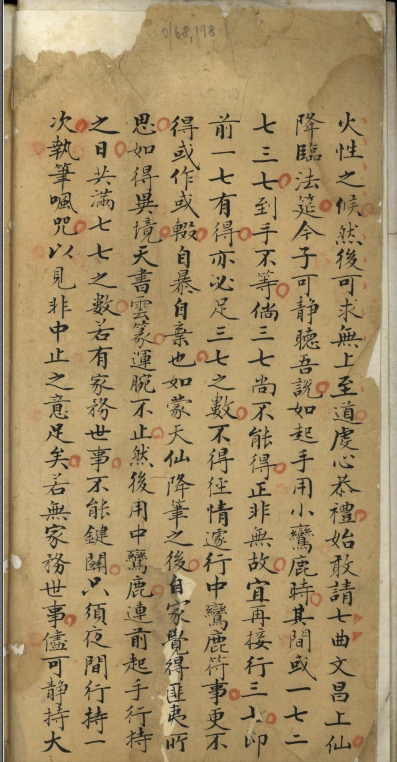 火性之候然後可求無上至道虔心恭禮始敢請七曲文昌上仙
降臨法筵今子可静聽吾說如起手用小鸞鹿時其間或一七二
七三七到手不等倘三七尚不能得正非無故宜再接行三七卽
前一七有得亦必足三七之數不得徑情遽行中鸞鹿符事更不
得或作或輟自暴自棄也如蒙天仙降筆之後自家覺得匪夷所
思如得異境天書雲篆運腕不止然後用中鸞鹿連前起手行持
之日共滿七七之數若有家務世事不能鍵關只須夜間行持一
次執筆嘿咒以見非中止之意足矣若無家務世事儘可静持大
0168,198